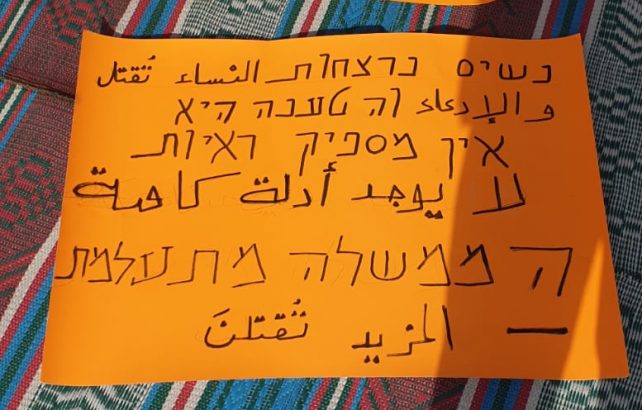 נשים נרצחות النساء تُقتل
והטענה היא والإدعاء
אין מספיק ראיות
لا يوجد أدلة كافية
הממשלה מתעלמת
— المزيد تُقتلنَ